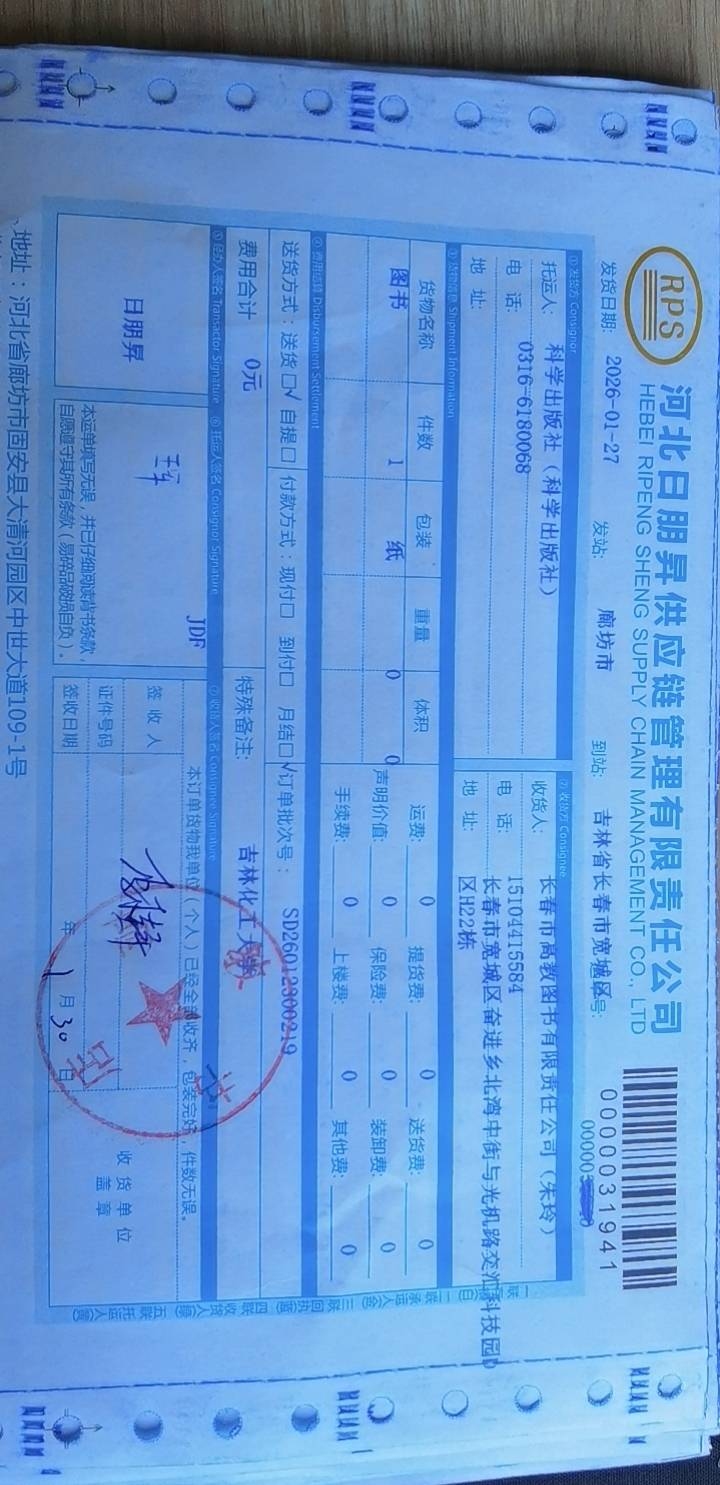 RPS
河北日朋昇供应链管理有限责任公司
HEBEI RIPENG SHENG SUPPLY CHAIN MANAGEMENT CO., LTD
0000031941
发货日期: 2026-01-27 发站: 廊坊市 到站: 吉林省长春市宽城区
号: 00000
①发货方 Consignor ②收货方 Consignee
托运人: 科学出版社(科学出版社) 收货人: 长春市高教图书有限责任公司(朱玲)
电 话: 0316-6180068 电话: 15104415584
地 址: 地 址: 长春市宽城区奋进乡北湾中街与光机路交汇科技园D
区H22栋
③货物信息 Shipment Information
货物名称 件数 包装 重量 体积 运费: 0 提货费: 0 送货费: 0
图书 1 纸 0 0 声明价值: 0 保险费: 0 装卸费: 0
手续费: 0 上楼费: 0 其他费: 0
④费用结算 Disbursement Settlement
送货方式: 送货☐√ 自提☐ 付款方式: 现付☐ 到付☐ 月结☐√ 订单批次号: SD26012300219
费用合计 0元 特殊备注: 吉林化工大学
⑤经办人签名 Transactor Signature ⑥托运人签名 Consignor Signature ⑦收货人签名 Consignee Signature
日朋昇
JDF
本运单填写无误,并已仔细阅读背书条款,
自愿遵守其所有条款(易碎品破损自负)。
本订单货物我单位(个人)已经全部收齐,包装完好,件数无误。
签 收 人
证件号码
签收日期 年 1 月 30 日
收货单位
盖 章
地址:河北省廊坊市固安县大清河园区中世大道109-1号